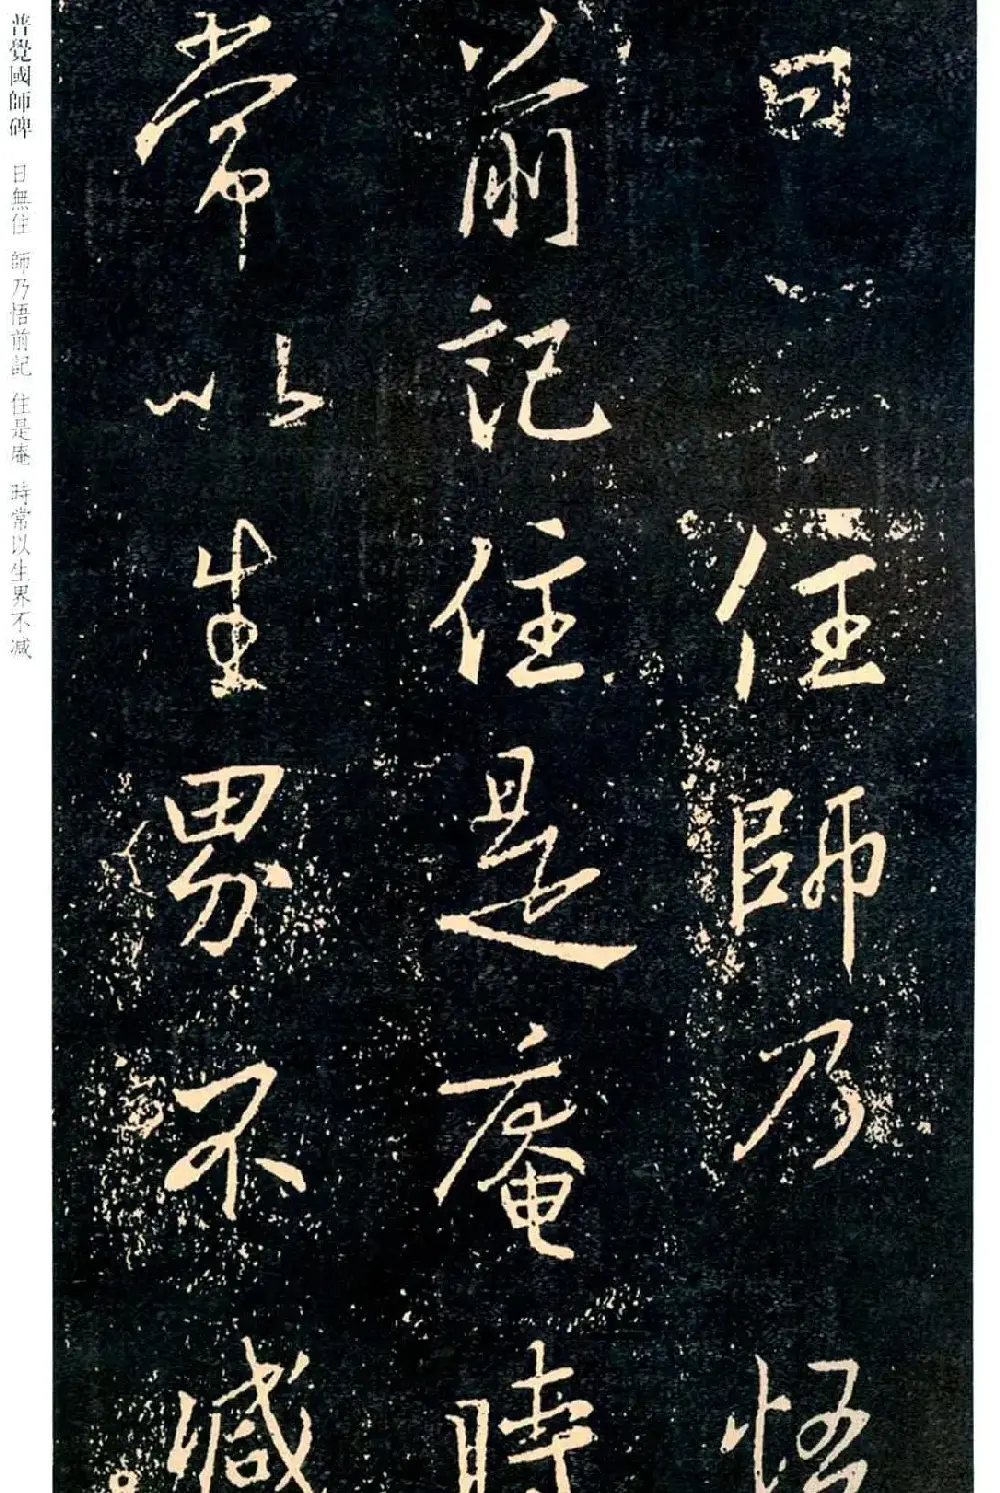 普覺國師碑 日無住 師乃悟前記 住是庵 時常以生界不減
日 住師乃悟
前記住是庵時
常以生界不減